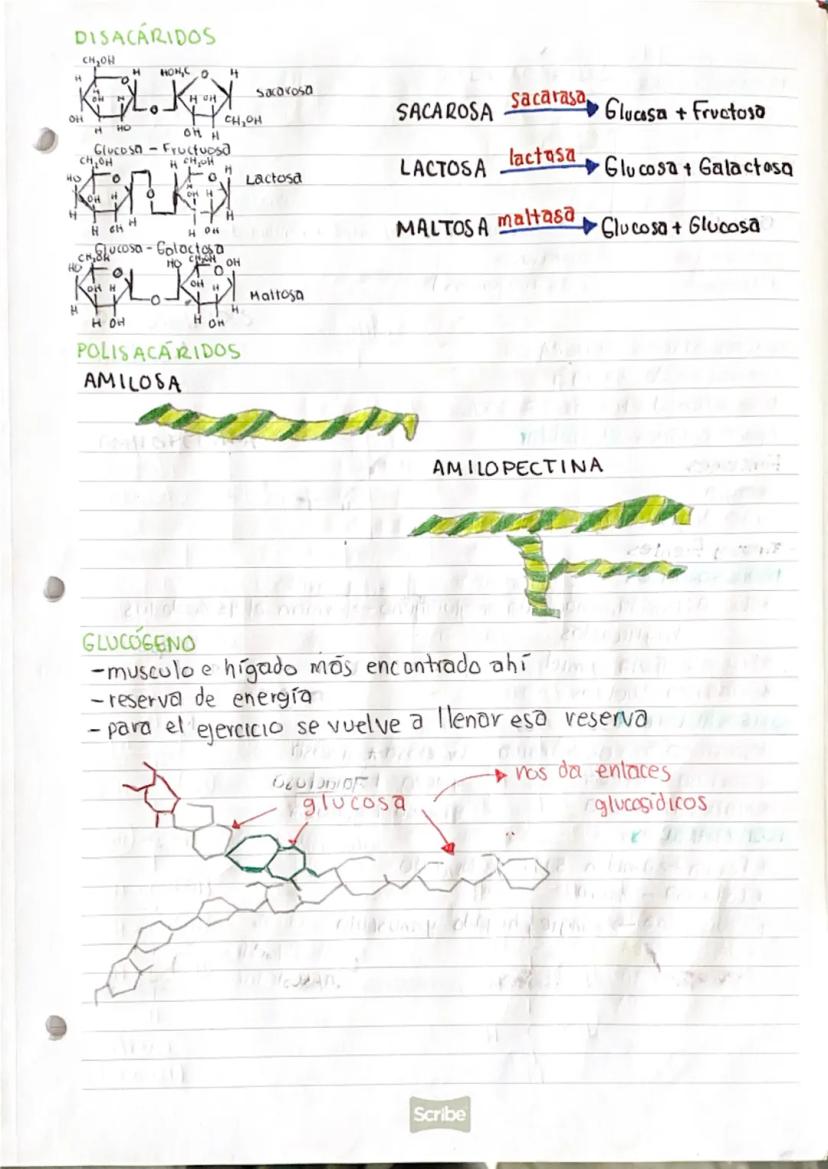 DISACÁRIDOS
CH₂OH
H HOH₂C O H
O
H H
OH H H OH
OH O CH₂OH
H HO OH H
Sacarosa
Glucosa - Fructuosa
CH₂OH H CH₂OH
HO O O H
OH H O OH H
H H
H OH H OH
Lactosa
Glucosa - Galactosa
CH₂OH HO CH₂OH OH
HO O O
OH H OH H
H O H
H OH H OH
Maltosa
SACAROSA sacarasa Glucosa + Fructosa
LACTOSA lactasa Glucosa + Galactosa
MALTOSA maltasa Glucosa + Glucosa
POLISACÁRIDOS
AMILOSA
AMILOPECTINA
GLUCÓGENO
- musculo e hígado más encontrado ahí
- reserva de energía
- para el ejercicio se vuelve a llenar esa reserva
glucosa
nos da enlaces
glucosidicos
Scribe